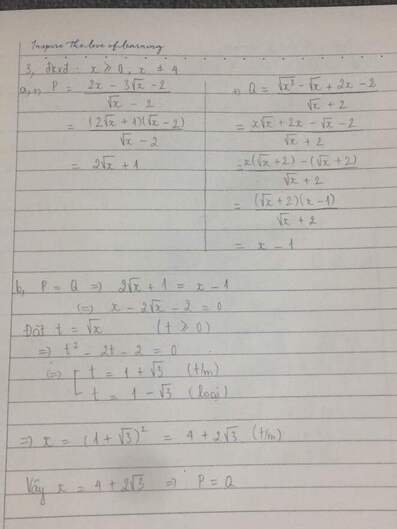 Inspire the love of learning
3, đkxđ: x ≥ 0, x ≠ 4
a, +) P = (2x - 3√x - 2)/(√x - 2)
= ((2√x + 1)(√x - 2))/(√x - 2)
= 2√x + 1
+) Q = (√x³ - √x + 2x - 2)/(√x + 2)
= (x√x + 2x - √x - 2)/(√x + 2)
= (x(√x + 2) - (√x + 2))/(√x + 2)
= ((√x + 2)(x - 1))/(√x + 2)
= x - 1
b, P = Q => 2√x + 1 = x - 1
(=) x - 2√x - 2 = 0
Đặt t = √x (t ≥ 0)
=> t² - 2t - 2 = 0
(=) [ t = 1 + √3 (t/m)
t = 1 - √3 (loại)
=> x = (1 + √3)² = 4 + 2√3 (t/m)
Vậy x = 4 + 2√3 => P = Q